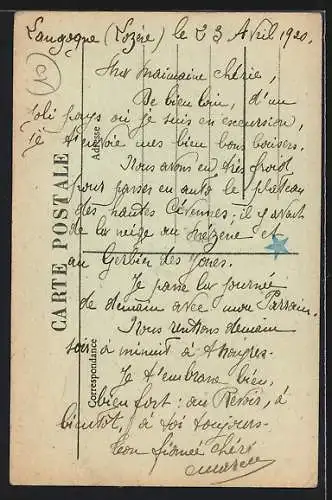 Langogne (Lozère) le 23 Avril 1920.
Ma maimaine chérie,
De bien loin, d'un
joli pays où je suis en excursion,
je t'envoie mes bien bons baisers.
Nous avons eu très froid
pour passer en auto le plateau
des hautes Cévennes ; il y avait
de la neige au Mézenc et
au Gerbier des Joncs.
Je passe la journée
de demain avec mon Parrain.
Nous rentrons demain
soir à minuit à
Je t'embrasse bien,
bien fort : au Revoir, à
bientôt, à toi toujours.
Ton fiancé chéri
CARTE POSTALE
Adresse
Correspondance